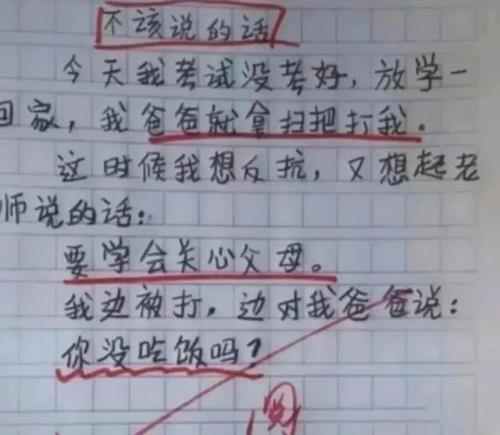 不该说的话
今天我考试没考好，放学一
回家，我爸爸就拿扫把打我。
这时候我想反抗，又想起老
师说的话：
要学会关心父母。
我边被打，边对我爸爸说：
你没吃饭吗？